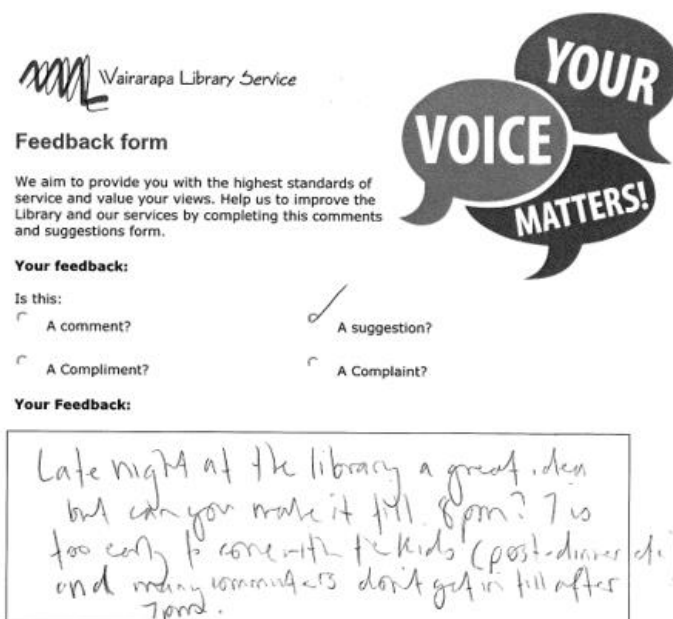 Wairarapa Library Service
YOUR
VOICE
MATTERS!
Feedback form
We aim to provide you with the highest standards of
service and value your views. Help us to improve the
Library and our services by completing this comments
and suggestions form.
Your feedback:
Is this:
A comment?
A suggestion?
A Compliment?
A Complaint?
Your Feedback:
Late night at the library a great idea
but can you make it till 8pm? 7 is
too early to come with the kids (post-dinner
and many commuters don't get in till after
7pm.